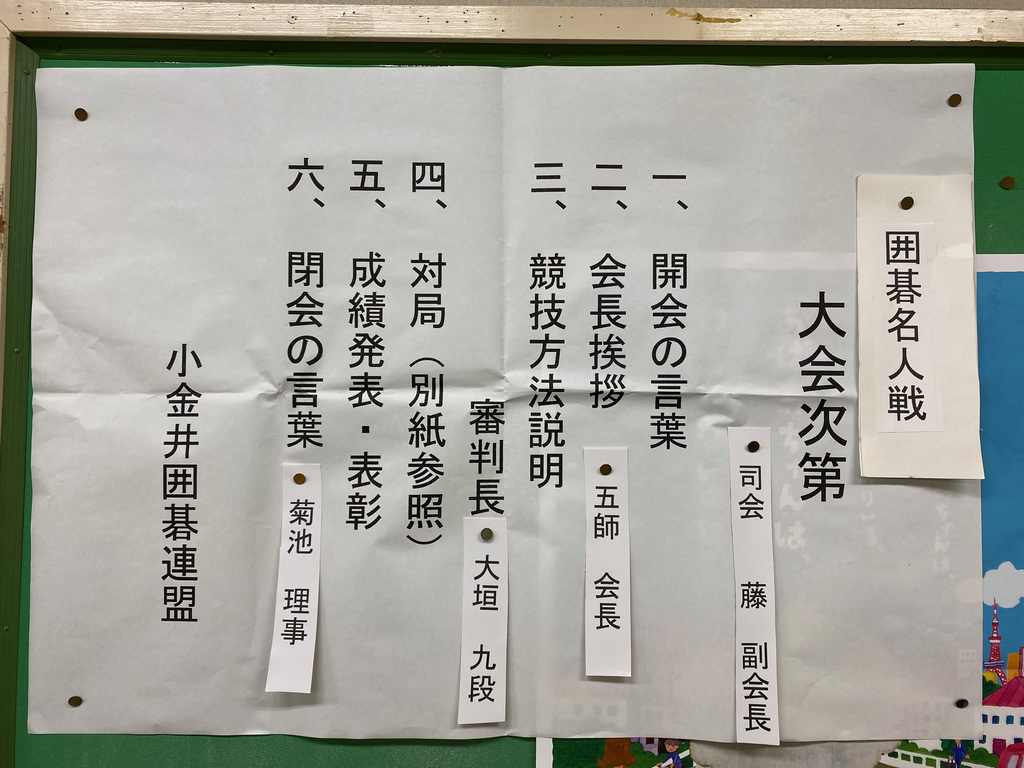 囲碁名人戦
大会次第
司会 藤 副会長
一、開会の言葉
二、会長挨拶
五師 会長
三、競技方法説明
審判長
大垣 九段
四、対局(別紙参照)
五、成績発表・表彰
六、閉会の言葉
菊池 理事
小金井囲碁連盟